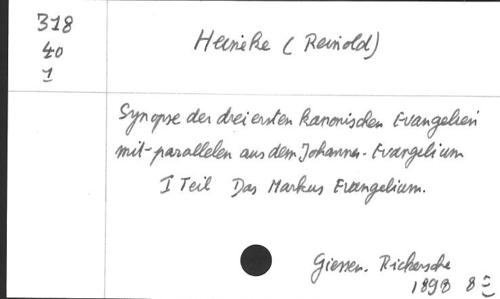 318
40
1
Heineke (Reinold)
Synopse der drei ersten kanonischen Evangelien
mit-parallelen aus dem Johannes-Evangelium
I Teil Das Markus Evangelium.
Giessen. Rickersche
1898 8º